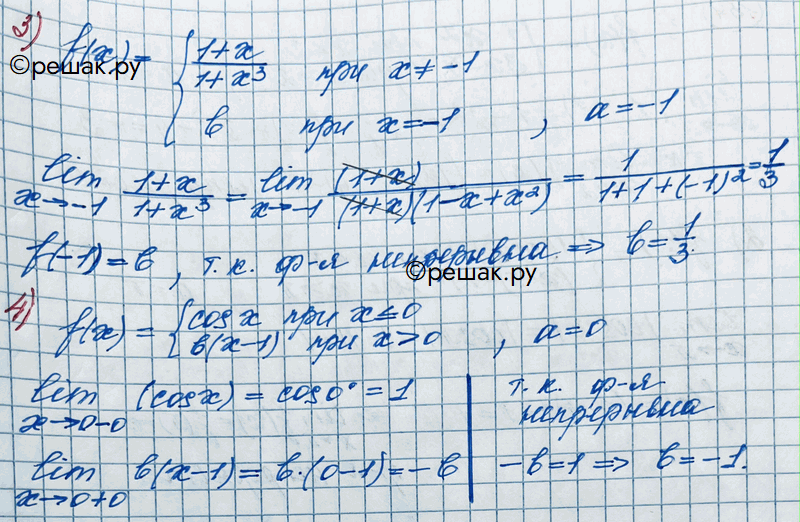 3) f(x) = { (1+x)/(1+x³) при x ≠ -1
©решак.ру
b при x=-1, a=-1
lim x→-1 (1+x)/(1+x³) = lim x→-1 (1+x)/((1+x)(1-x+x²)) = 1/(1+1+(-1)²) = 1/3
f(-1)=b, т.к. ф-я непрерывна. ⇒ b=1/3.
©решак.ру
4) f(x) = { cos x при x≤0
b(x-1) при x>0, a=0
lim x→0-0 (cos x) = cos0° = 1
lim x→0+0 b(x-1) = b·(0-1) = -b
т.к. ф-я
непрерывна
-b=1 ⇒ b=-1.